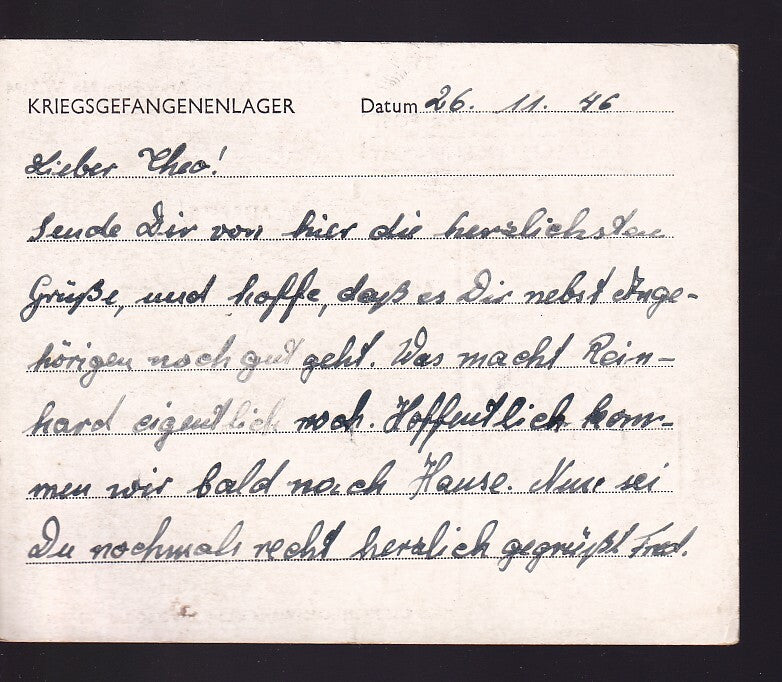 KRIEGSGEFANGENENLAGER Datum 26. 11. 46
Lieber Theo!
Sende Dir von hier die herzlichsten
Grüße, und hoffe, daß es Dir nebst Ange-
hörigen noch gut geht. Was macht Rein-
hard eigentlich noch. Hoffentlich kom-
men wir bald nach Hause. Nun sei
Du nochmals recht herzlich gegrüßt